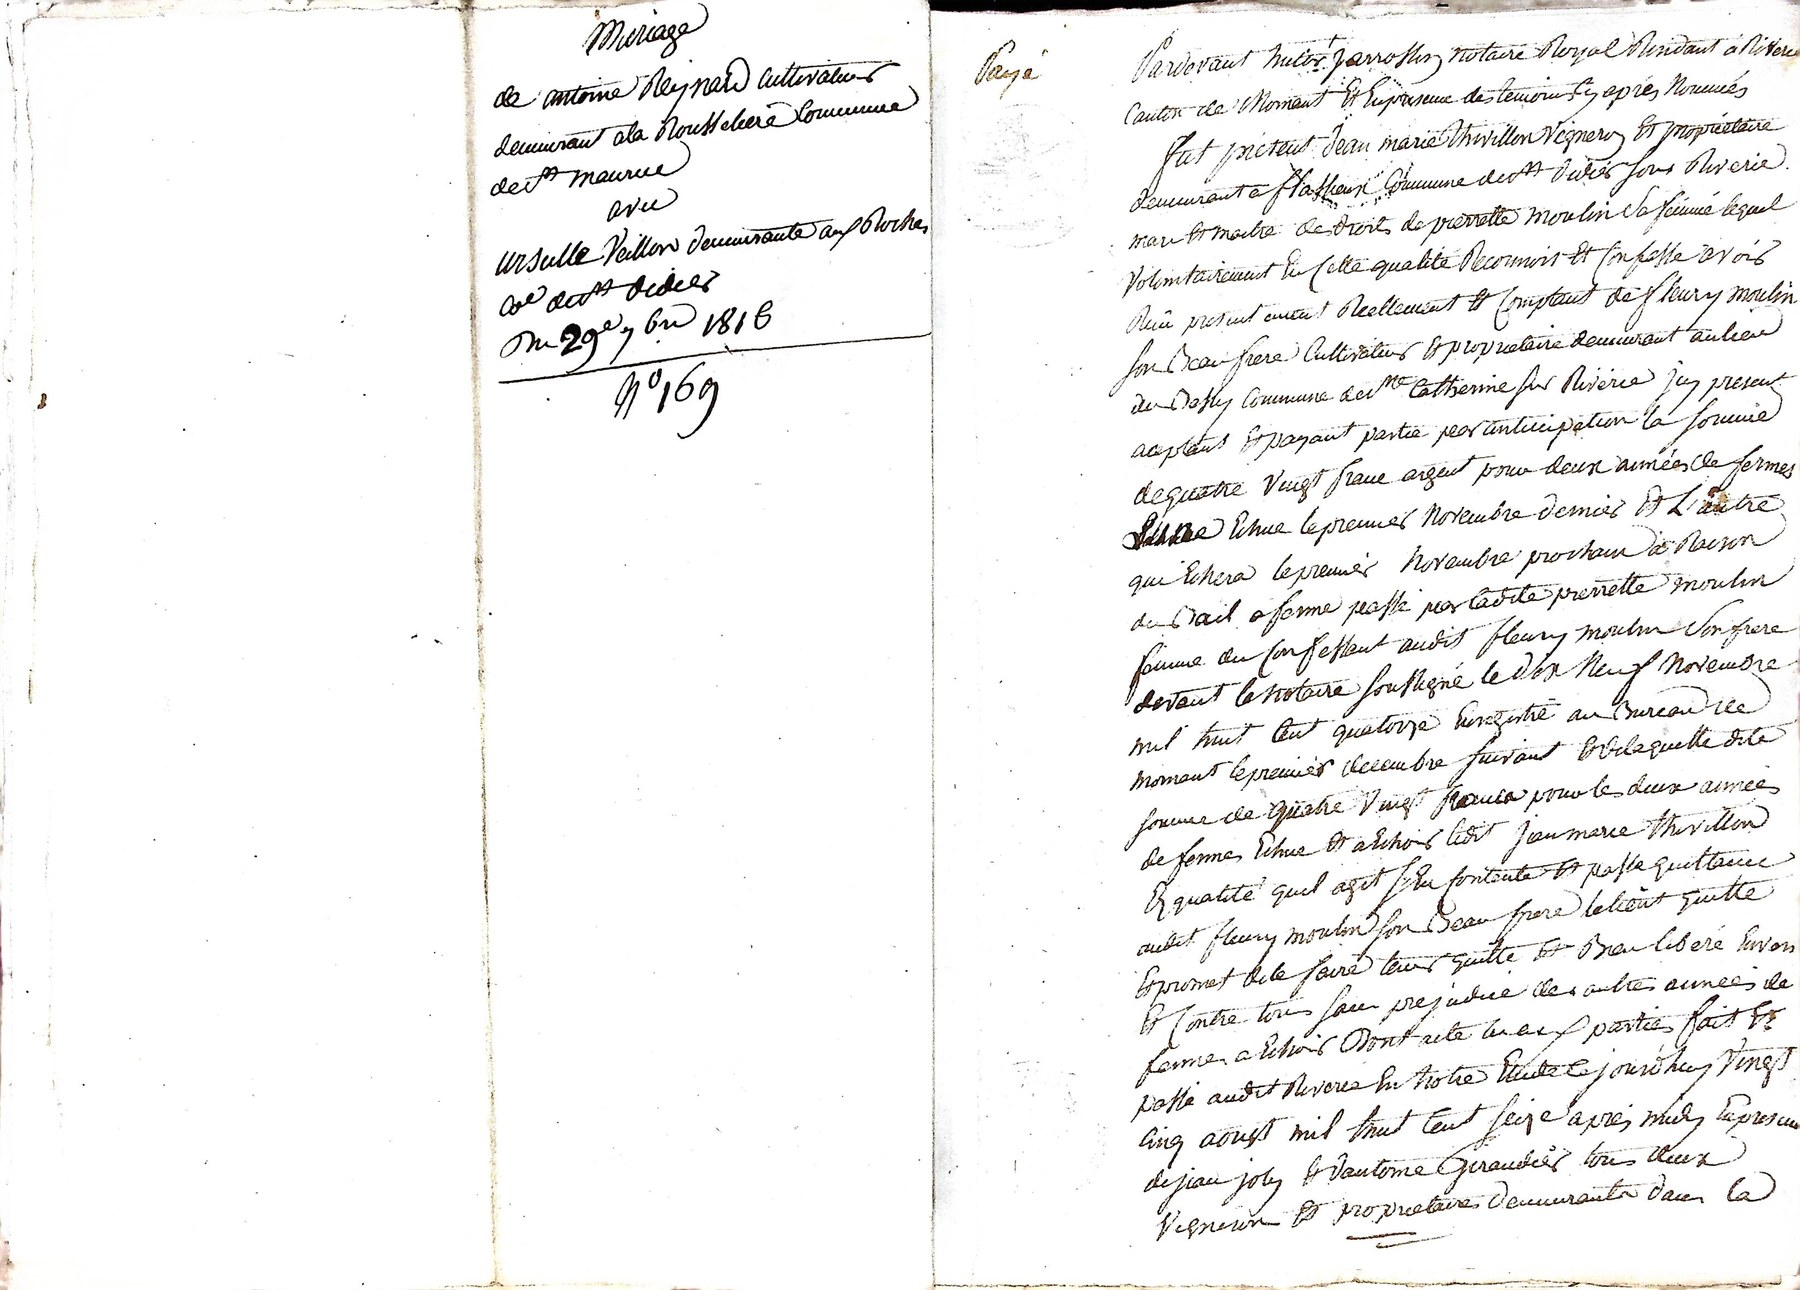 Mariage
de antoine Reynard Cultivateur
demeurant ala Rousseliere Commune
de st maurice
avec
ursulle Veillon demeurante aux Roches
Coe de st didier
Du 29e 7bre 1816
No 169
Payé
Pardevant notaire Royal Residant a Riverie
Canton de Mornant Et En presence des temoins Cy aprés Nommés
fut présent Jean marie Thivillon Vigneron Et propriétaire
demeurant a flassieux Commune de st didier sous Riverie
mari Et maitre des droits de pierrette moulin Sa femme lequel
Volontairement En Cette qualité Reconnois Et Confesse avoir
Reçu presentement Reellement Et Comptant de fleury moulin
son Beau frere Cultivateur Et proprietaire demeurant au lieu
du Commune de ste Catherine sur Riverie Icy present
aceptant Et payant partie par anticipation la somme
de quatre Vingt franc argent pour deux années de fermes
Echue le premier Novembre dernier Et L'autre
qui Echera le premier Novembre prochain a Raison
du Bail a ferme passé par ladite pierrette moulin
femme du Confessant audit fleury moulin Son frere
devant le notaire soussigné le dix Neuf Novembre
mil huit Cent quatorze Enregistré au Bureau de
mornant le premier decembre suivant Et de laquelle dite
somme de quatre Vingt francs pour les deux années
de fermes Echue Et a Echoir ledit Jean marie thivillon
En qualité quil agit s'En Contente Et passe quittance
audit fleury moulin son Beau frere le tient quitte
Et promet de le faire tenir quitte Et Bien libéré Envers
Et Contre tous sans prejudice des autres années de
fermes a Echoir Dont acte lu aux parties fait Et
passé audit Riverie En notre Etude Ce jourdhuy Vingt
Cinq aoust mil huit Cent seize aprés midy En presence
de jean joly Et d'antoine Giraudier tous deux
Vigneron Et proprietaires demeurants dans la